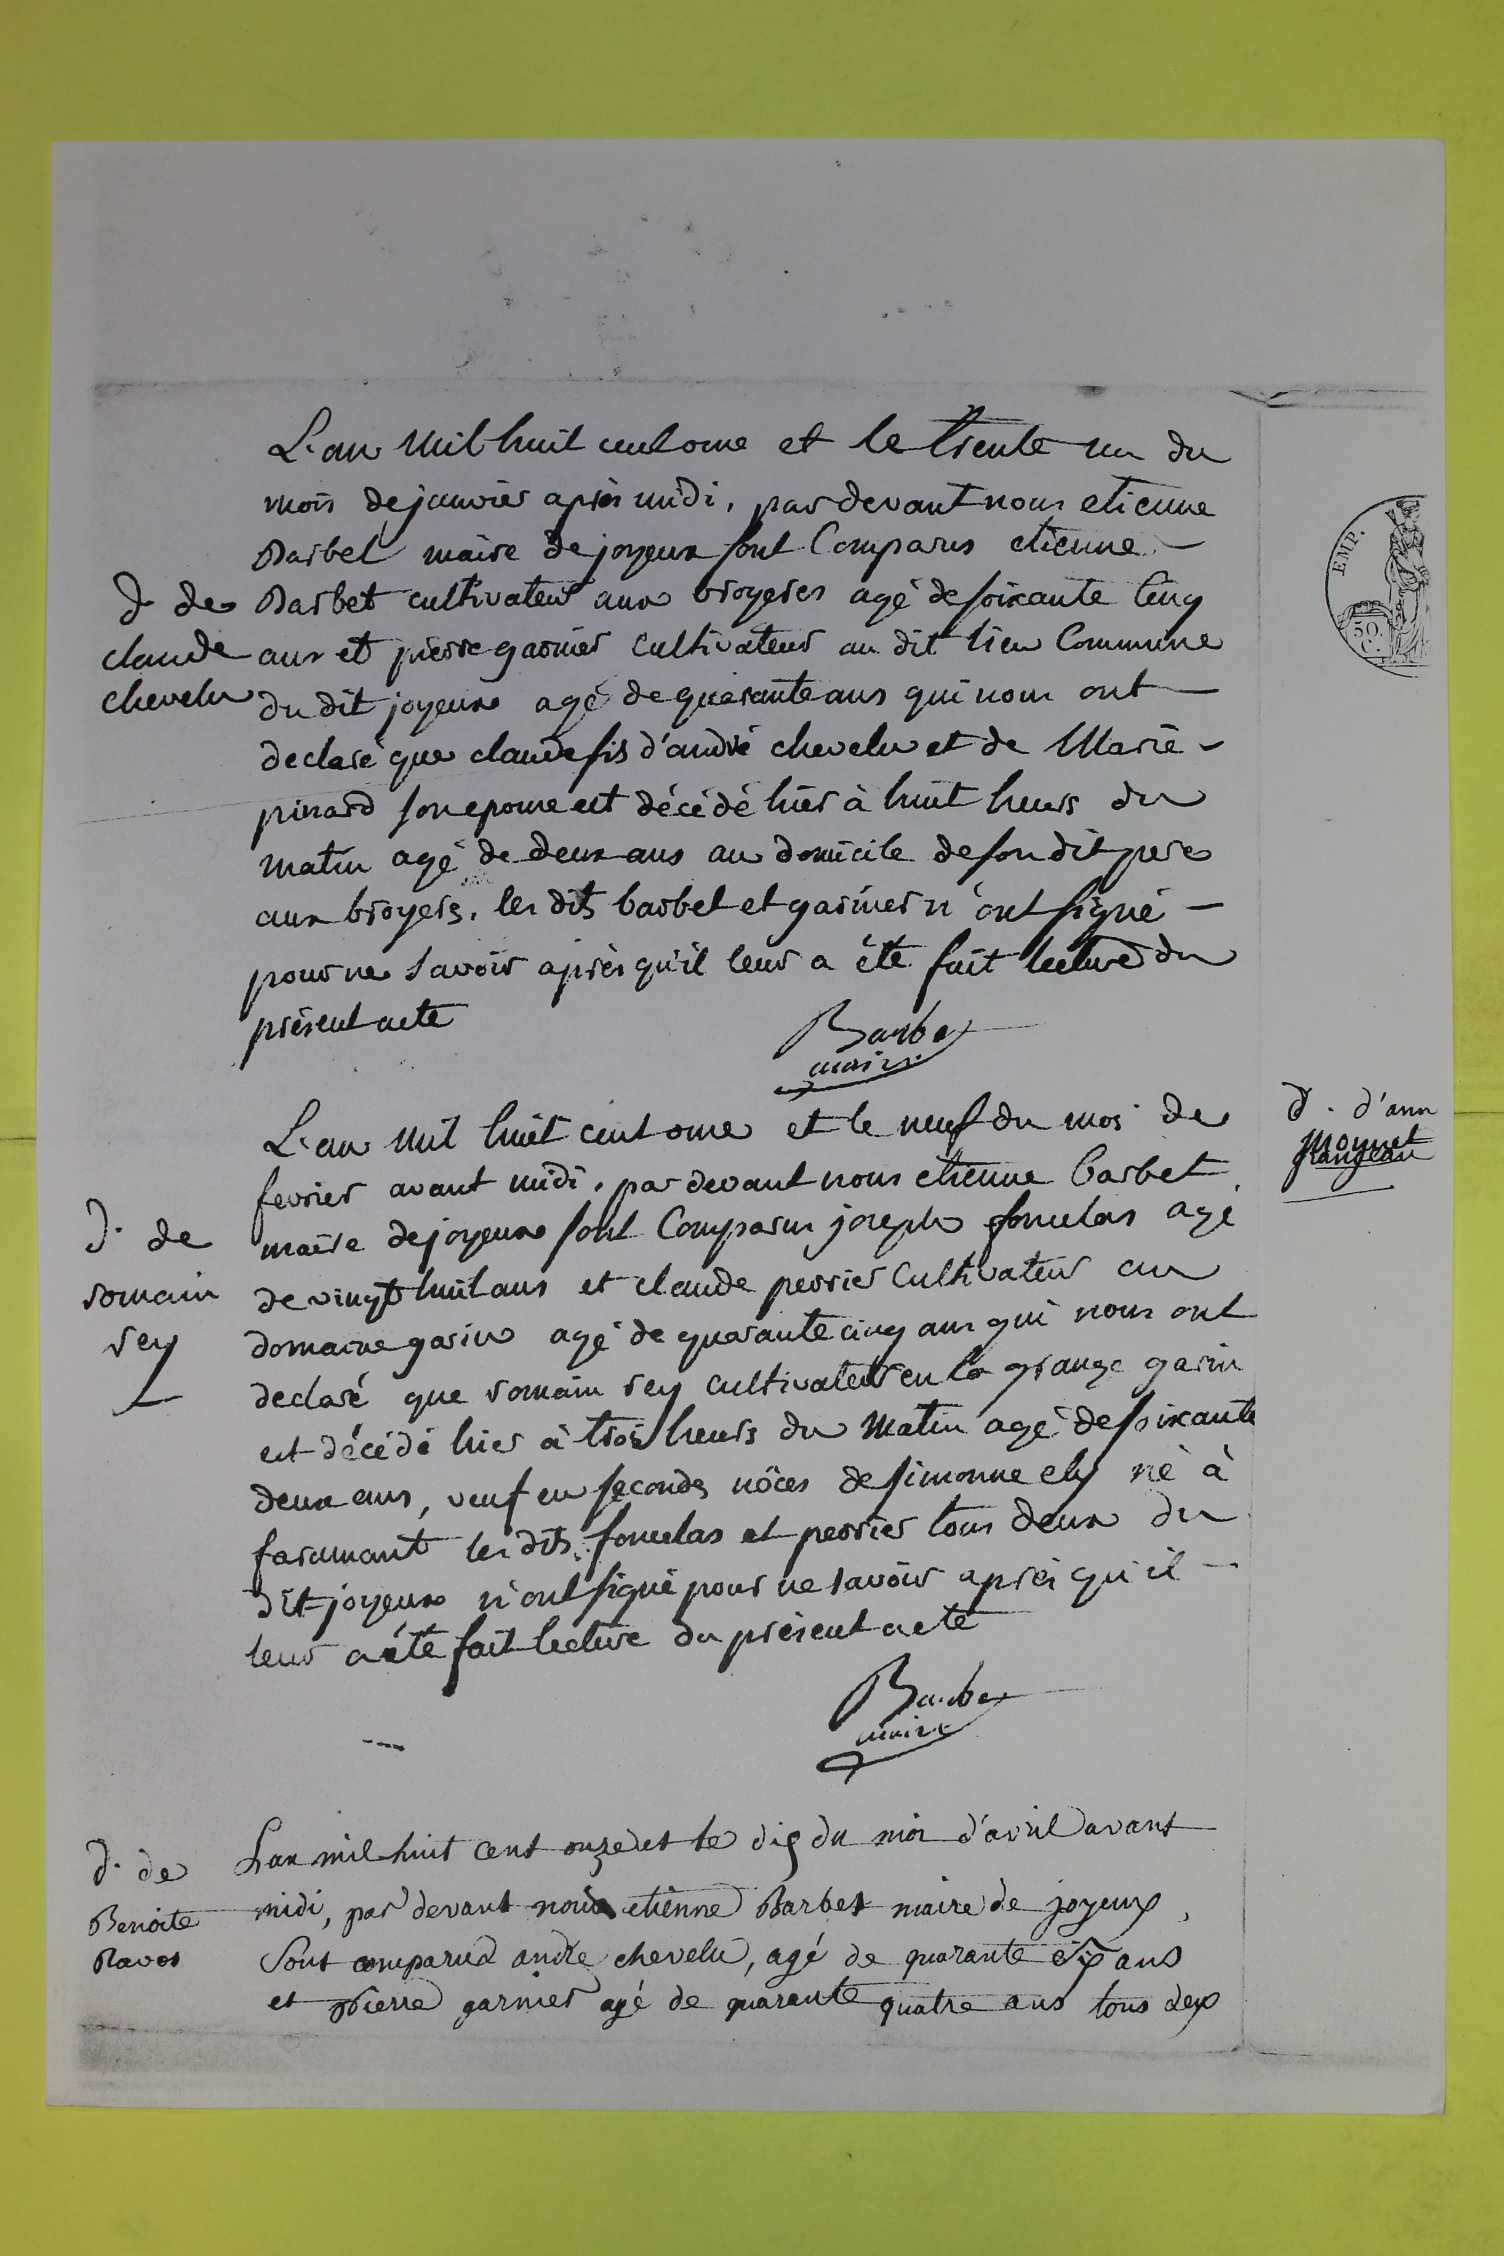 L'an mil huit cent onze et le trente un du
mois de janvier après midi, par devant nous etienne
Barbet maire de joyeux sont Comparus etienne
d. de
claude
chevelu
Barbet cultivateur aux broyeres agé de soixante Cinq
ans et pierre garnier cultivateur au dit lieu Commune
du dit joyeux agé de quarante ans qui nous ont
declaré que claude fils d'andré chevelu et de Marie
pinard son epouse est décédé hier à huit heurs du
matin agé de deux ans au domicile de son dit pere
aux broyers, les dits barbet et garnier n'ont signé
pour ne savoir après qu'il leur a été fait lecture du
présent acte
Barbet
maire
L'an mil huit cent onze et le neuf du mois de
fevrier avant midi, par devant nous etienne barbet
d. de
romain
rey
maire de joyeux sont Comparus joseph agé
de vingt huit ans et claude perrier Cultivateur au
domaine garin agé de quarante cinq ans qui nous ont
declaré que romain rey cultivateur en la grange garin
est décédé hier à trois heurs du matin agé de soixante
deux ans, veuf en secondes nôces de simonne ely né à
faramant les dits et perrier tous deux du
dit joyeux n'ont signé pour ne savoir après qu'il
leur a été fait lecture du présent acte
Barbet
maire
d. de
Benoite
Ravos
L'an mil huit cent onze et le dix du mois d'avril avant
midi, par devant nous etienne Barbet maire de joyeux,
Sont comparus andré chevelu, agé de quarante six ans
et Pierre garnier agé de quarante quatre ans tous deux
EMP.
50.
C.
d. d'ann